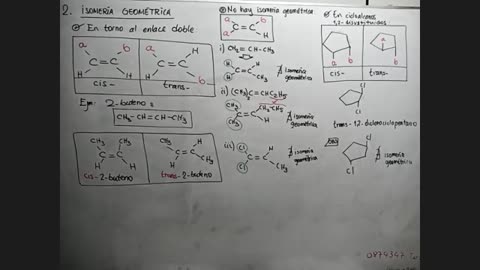 2. ISOMERÍA GEOMÉTRICA
⊛ En torno al enlace doble
a b
C=C
H H
cis-
a H
C=C
H b
trans-
Ejm: 2-buteno:
CH₃-CH=CH-CH₃
CH₃ CH₃
C=C
H H
cis-2-buteno
CH₃ H
C=C
H CH₃
trans-2-buteno
⊛ No hay isomería geométrica
a b
C=C
a H
i) CH₂=CH-CH₃
H H
C=C
H CH₃
∄ isomería geométrica
ii) (CH₃)₂C=CHC₂H₅
CH₃ CH₂-CH₃
C=C
CH₃ H
∄ isomería geométrica
iii) Cl H
C=C
Cl CH₃
∄ isomería geométrica
⊛ En cicloalcanos
1,2-disustituidos
a
b
cis-
a
trans-
Cl
Cl
trans-1,2-diclorociclopentano
Cl
Cl
∄ isomería geométrica